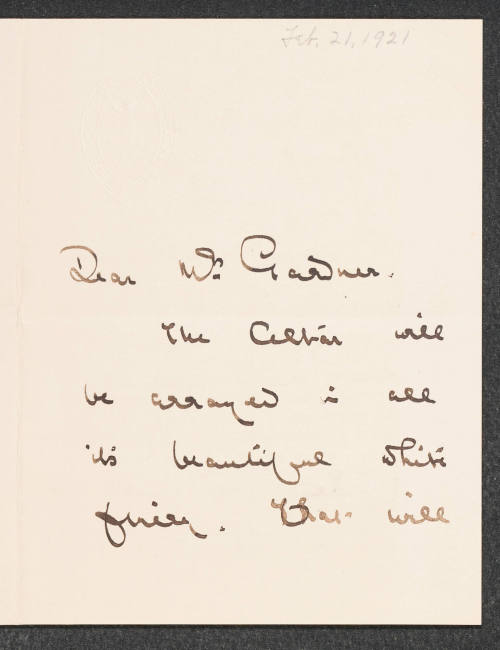 Feb. 21, 1921
Dear Mrs Gardner.
The Celtar will
be arrayed in all
its beautiful white
finery. That will